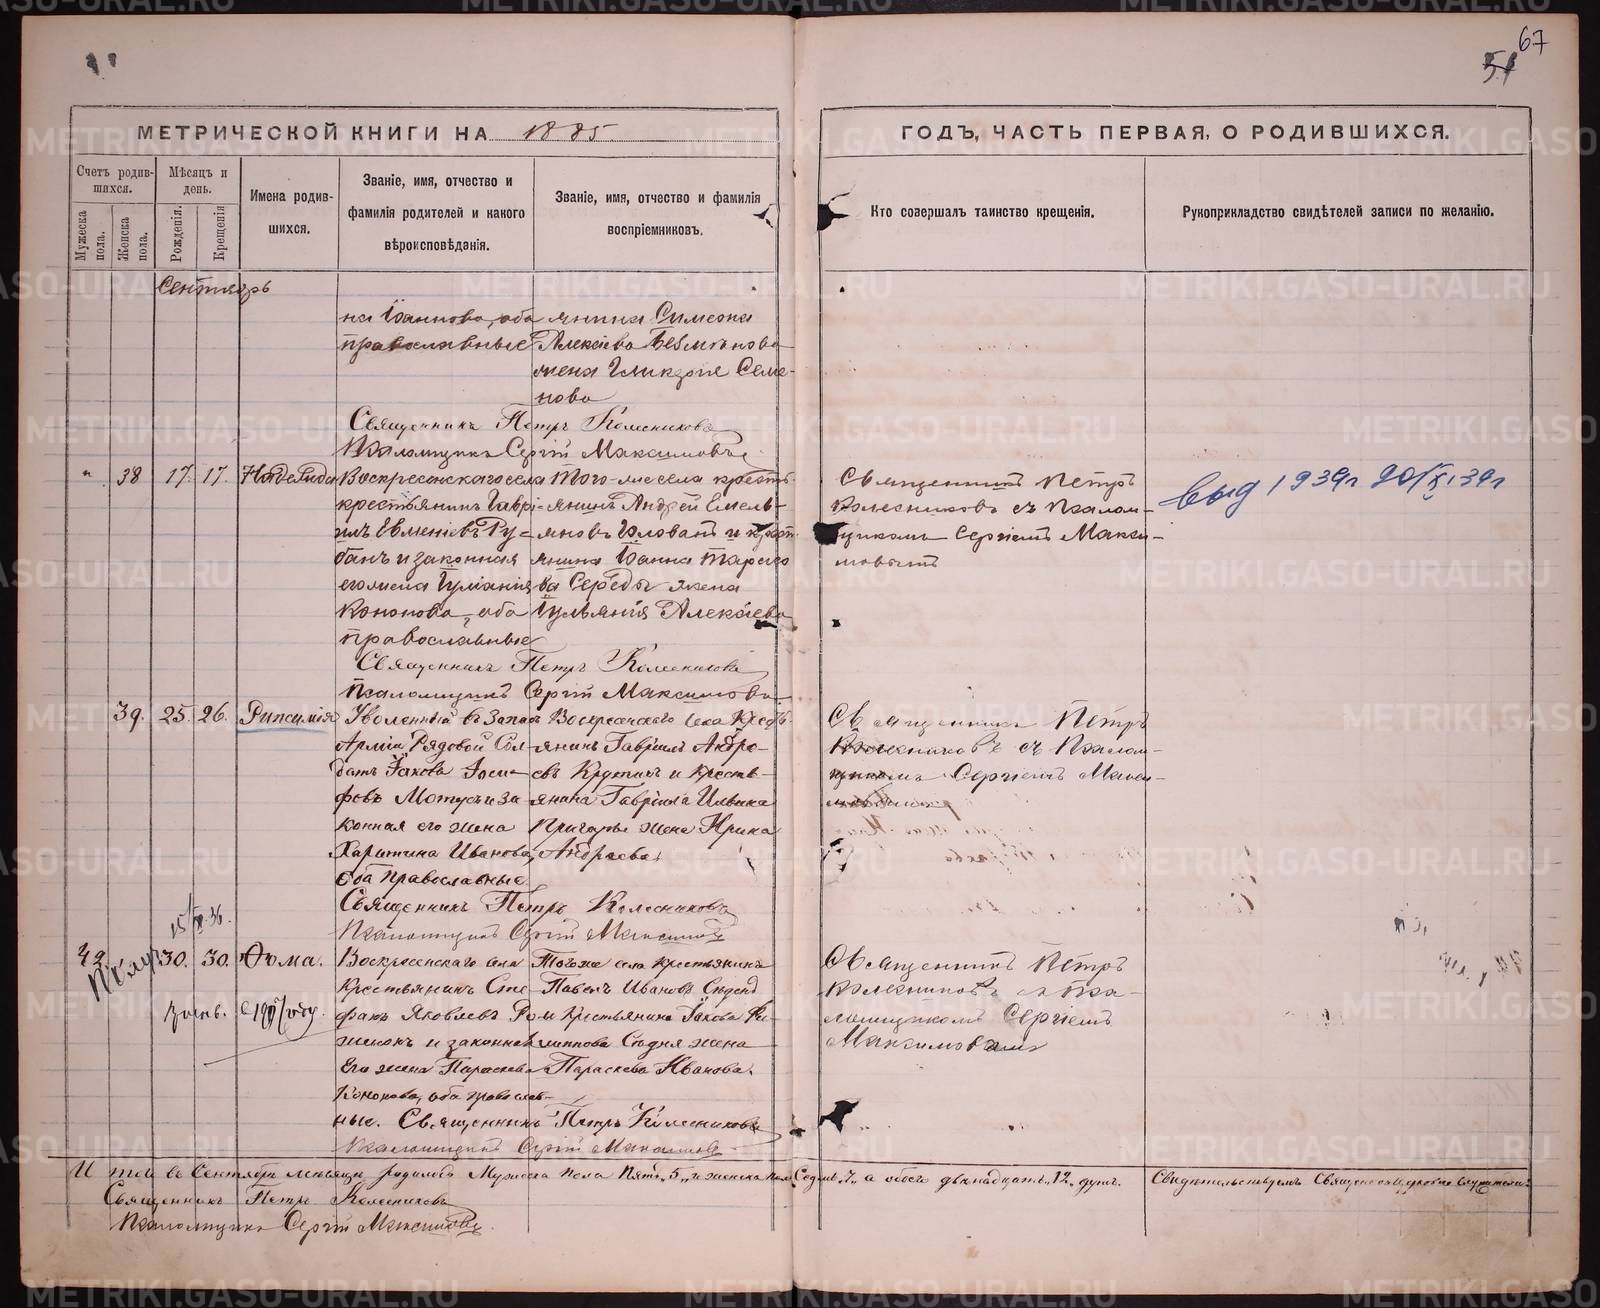 67
51
МЕТРИЧЕСКОЙ КНИГИ НА 1885.
ГОДЪ, ЧАСТЬ ПЕРВАЯ, О РОДИВШИХСЯ.
Счетъ родившихся.
Мужеска пола.
Женска пола.
Мѣсяцъ и день.
Рожденія.
Крещенія
Имена родившихся.
Званіе, имя, отчество и фамилія родителей и какого вѣроисповѣданія.
Званіе, имя, отчество и фамилія воспріемниковъ.
Кто совершалъ таинство крещенія.
Рукоприкладство свидѣтелей записи по желанію.
Сентябрь
на Іоаннова, оба
православные
янина Симеона
Алексѣева
жена Гликерія Семе-
нова
Священникъ Петръ Колесниковъ
Псаломщикъ Сергій Максимовъ
" 38 17. 17.
Воскресенскаго села
крестьянинъ Гаврі-
илъ Евменіевъ Ру-
банъ и законная
его жена Іуліанія
Кононова, оба
православные
Того-же села кресть-
янинъ Андрей Емель-
яновъ Головатъ и крест-
янина Іоанна Тарасо
ва Середы жена
Іульянія Алексѣева
Священникъ Петръ
Колесниковъ съ Псалом-
щикомъ Сергіемъ Макси-
мовымъ
выд 1939г 20/IX 39г
Священникъ Петръ Колесниковъ
Псаломщикъ Сергій Максимовъ
39. 25. 26. Рипсимія
Уволенный въ запасъ
Арміи Рядовой Сол-
датъ Іаковъ Іоси-
фовъ Мотусъ и за
конная его жена
Харитина Иванова,
оба православные
Восвресенского села Крестъ-
янинъ Гавріилъ Андре-
евъ и кресть-
янина Гавріила
жена Ирина
Андреева.
Священникъ Петръ
Колесниковъ съ Псалом-
щикомъ Сергіемъ Макси-
мовымъ
Священникъ Петръ Колесниковъ
Псаломщикъ Сергій Максимовъ
15/IX 36.
30. 30. Ѳома.
Воскресенскаго села
крестьянинъ Сте-
фанъ Яковлевъ Ром
и законная
его жена Параскева
Кононова, оба православ-
ные.
Тогоже села крестьянинъ
Павелъ Ивановъ
крестьянина Іакова Фи-
липпова жена
Параскева Иванова.
Священникъ Петръ
Колесниковъ съ Пса-
ломщикомъ Сергіемъ
Максимовымъ
Священникъ Петръ Колесниковъ
Псаломщикъ Сергій Максимовъ
Итого въ Сентябрѣ мѣсяцѣ родилось Мужеска пола Пять "5" и женска пола Седмь "7" а обоего двѣнадцать "12" душъ.
Свидѣтельствуемъ Священно церковно служители:
Священникъ Петръ Колесниковъ
Псаломщикъ Сергій Максимовъ.
METRIKI.GASO-URAL.RU